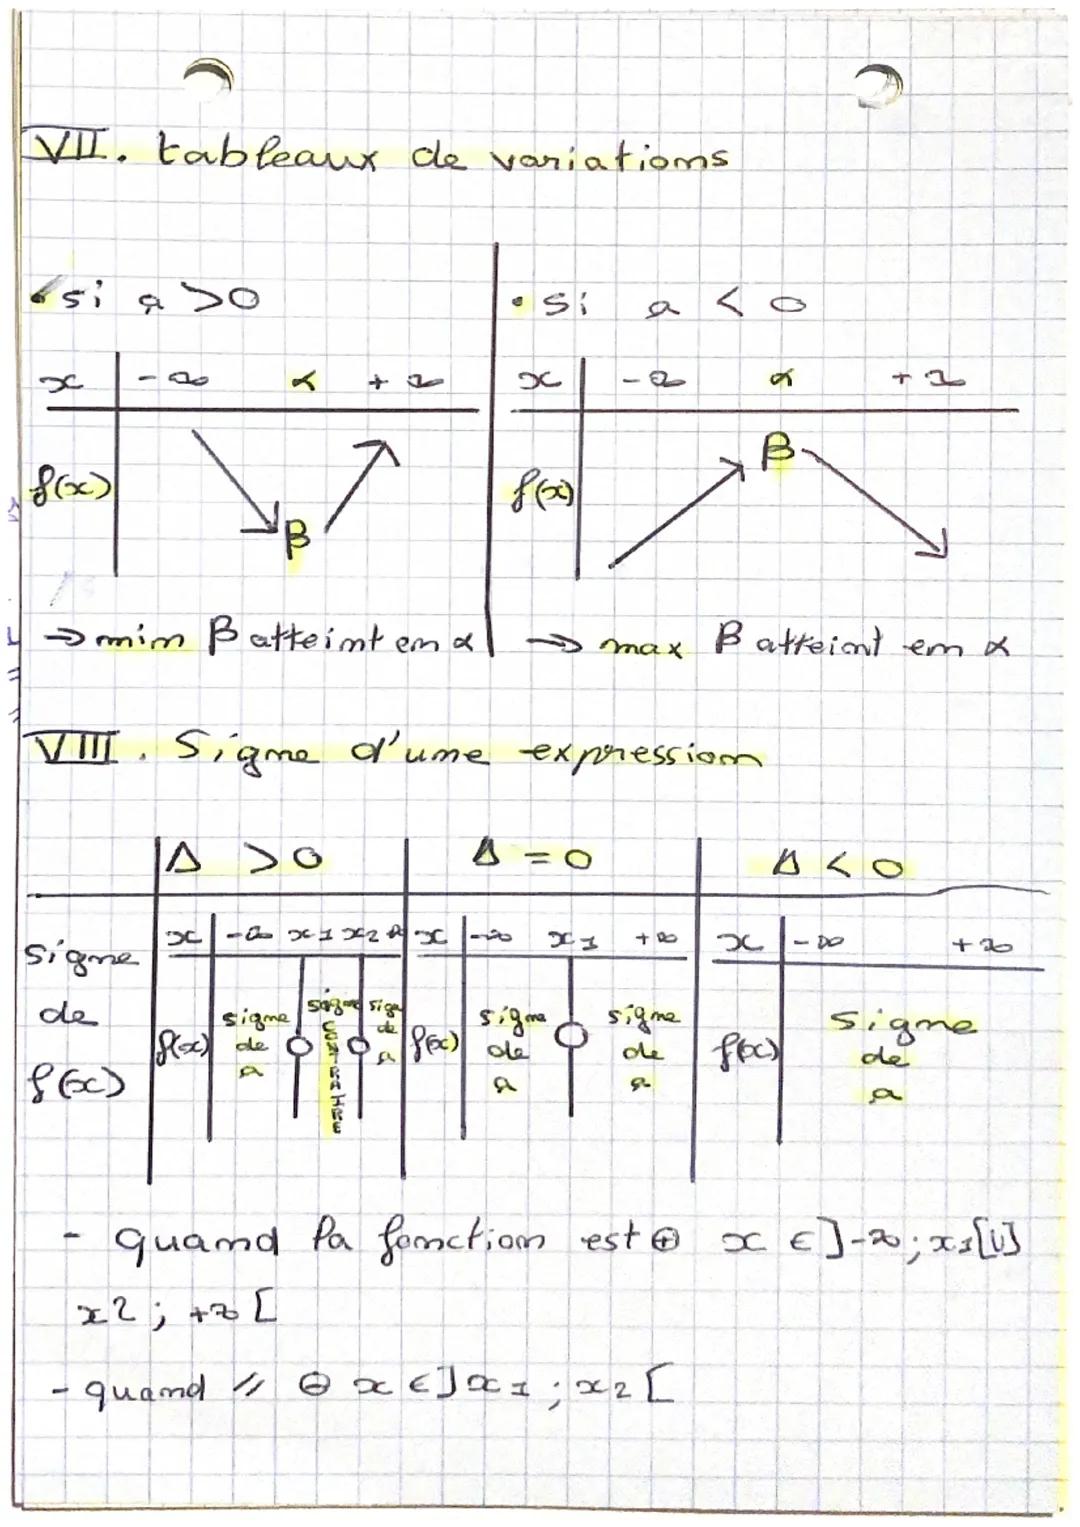 VII. tableaux de variations
• si a > 0
x -∞ α +∞
f(x) β
→ min β atteint en α
• si a < 0
x -∞ α +∞
f(x) β
→ max β atteint en α
VIII. Signe d'une expression
Δ > 0 Δ = 0 Δ < 0
signe
de
f(x)
x -∞ x1 x2 +∞
f(x) signe de a 0 signe CONTRAIRE 0 signe de a
x -∞ x1 +∞
f(x) signe de a 0 signe de a
x -∞ +∞
f(x) signe de a
- quand la fonction est ⊕ x ∈ ]-∞; x1[U]
x2; +∞ [
- quand // ⊖ x ∈ ] x1 ; x2 [